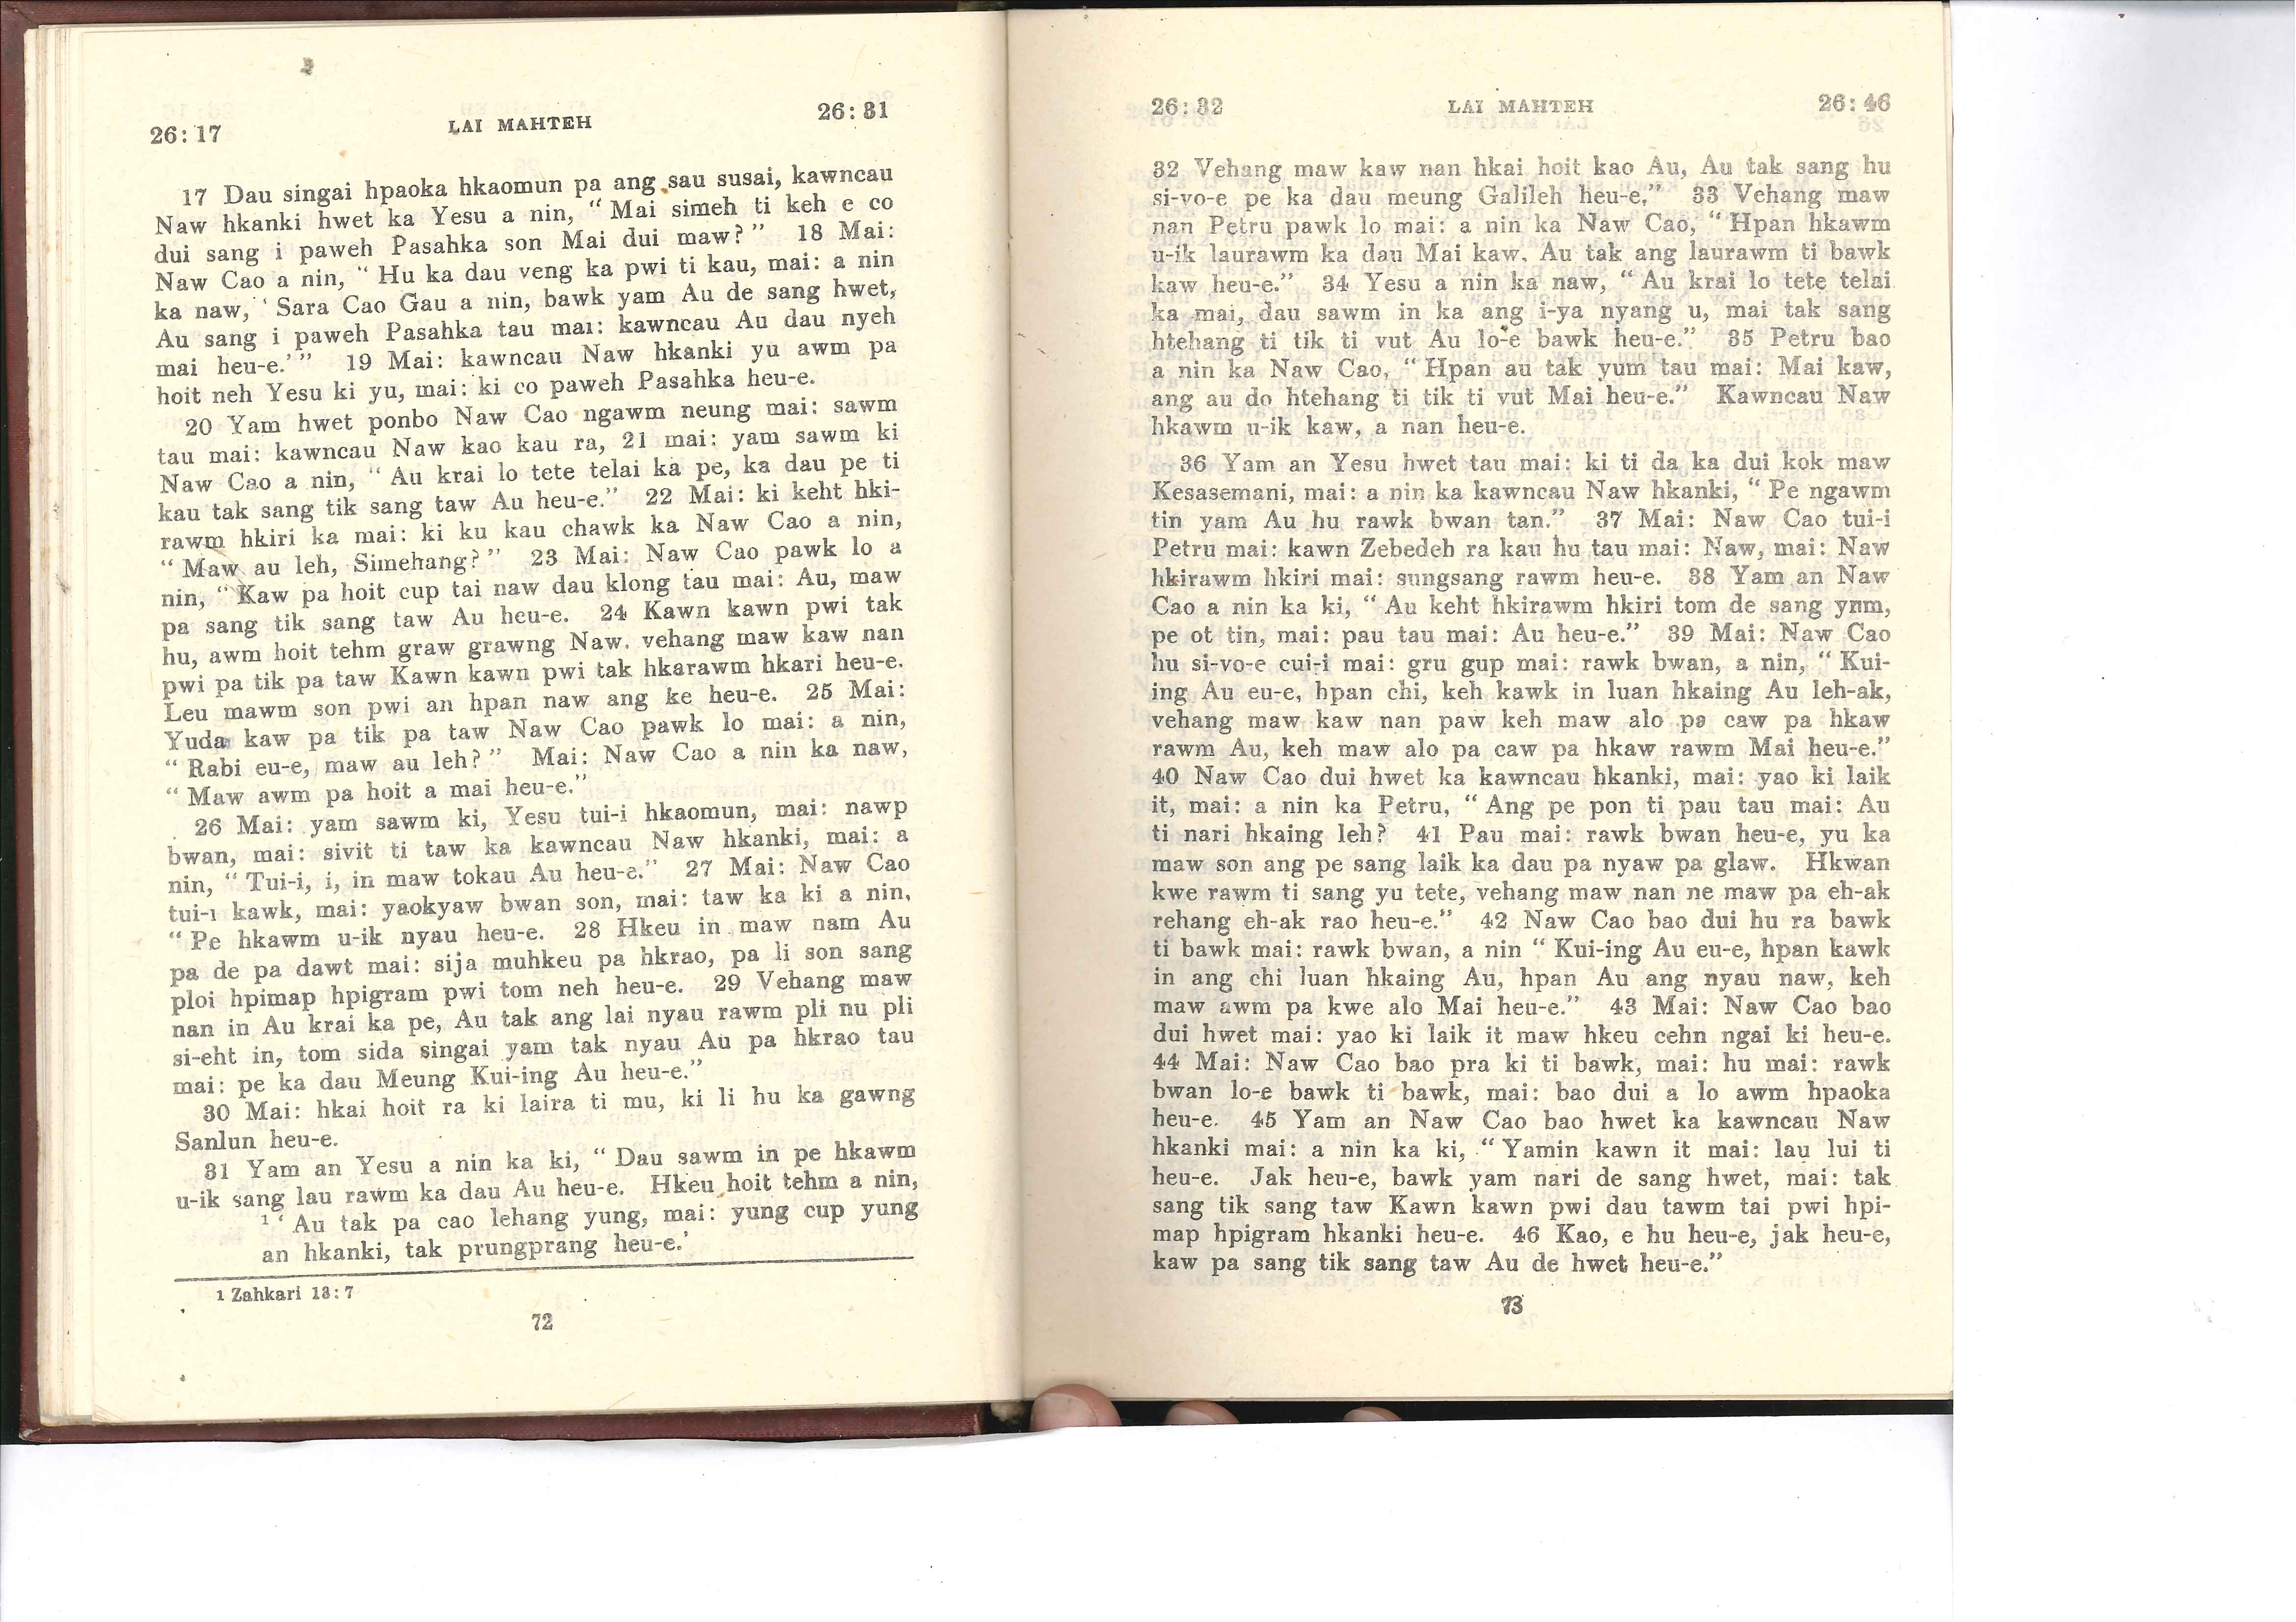 26: 17 LAI MAHTEH 26: 31
17 Dau singai hpaoka hkaomun pa ang sau susai, kawncau
Naw hkanki hwet ka Yesu a nin, “ Mai simeh ti keh e co
dui sang i paweh Pasahka son Mai dui maw? ” 18 Mai:
Naw Cao a nin, “ Hu ka dau veng ka pwi ti kau, mai: a nin
ka naw, ‘ Sara Cao Gau a nin, bawk yam Au de sang hwet,
Au sang i paweh Pasahka tau mai: kawncau Au dau nyeh
mai heu-e.’ ” 19 Mai: kawncau Naw hkanki yu awm pa
hoit neh Yesu ki yu, mai: ki co paweh Pasahka heu-e.
20 Yam hwet ponbo Naw Cao ngawm neung mai: sawm
tau mai: kawncau Naw kao kau ra, 21 mai: yam sawm ki
Naw Cao a nin, “ Au krai lo tete telai ka pe, ka dau pe ti
kau tak sang tik sang taw Au heu-e.” 22 Mai: ki keht hki-
rawm hkiri ka mai: ki ku kau chawk ka Naw Cao a nin,
“ Maw au leh, Simehang? ” 23 Mai: Naw Cao pawk lo a
nin, “ Kaw pa hoit cup tai naw dau klong tau mai: Au, maw
pa sang tik sang taw Au heu-e. 24 Kawn kawn pwi tak
hu, awm hoit tehm graw grawng Naw. vehang maw kaw nan
pwi pa tik pa taw Kawn kawn pwi tak hkarawm hkari heu-e.
Leu mawm son pwi an hpan naw ang ke heu-e. 25 Mai:
Yuda kaw pa tik pa taw Naw Cao pawk lo mai: a nin,
“ Rabi eu-e, maw au leh? ” Mai: Naw Cao a nin ka naw,
“ Maw awm pa hoit a mai heu-e.”
26 Mai: yam sawm ki, Yesu tui-i hkaomun, mai: nawp
bwan, mai: sivit ti taw ka kawncau Naw hkanki, mai: a
nin, “ Tui-i, i, in maw tokau Au heu-e.” 27 Mai: Naw Cao
tui-i kawk, mai: yaokyaw bwan son, mai: taw ka ki a nin,
“ Pe hkawm u-ik nyau heu-e. 28 Hkeu in maw nam Au
pa de pa dawt mai: sija muhkeu pa hkrao, pa li son sang
ploi hpimap hpigram pwi tom neh heu-e. 29 Vehang maw
nan in Au krai ka pe, Au tak ang lai nyau rawm pli nu pli
si-eht in, tom sida singai yam tak nyau Au pa hkrao tau
mai: pe ka dau Meung Kui-ing Au heu-e.”
30 Mai: hkai hoit ra ki laira ti mu, ki li hu ka gawng
Sanlun heu-e.
31 Yam an Yesu a nin ka ki, “ Dau sawm in pe hkawm
u-ik sang lau rawm ka dau Au heu-e. Hkeu hoit tehm a nin,
1 ‘ Au tak pa cao lehang yung, mai: yung cup yung
an hkanki, tak prungprang heu-e.’
1 Zahkari 13: 7
72
26: 32 LAI MAHTEH 26: 46
32 Vehang maw kaw nan hkai hoit kao Au, Au tak sang hu
si-vo-e pe ka dau meung Galileh heu-e.” 33 Vehang maw
nan Petru pawk lo mai: a nin ka Naw Cao, “ Hpan hkawm
u-ik laurawm ka dau Mai kaw, Au tak ang laurawm ti bawk
kaw heu-e.” 34 Yesu a nin ka naw, “ Au krai lo tete telai
ka mai, dau sawm in ka ang i-ya nyang u, mai tak sang
htehang ti tik ti vut Au lo-e bawk heu-e.” 35 Petru bao
a nin ka Naw Cao, “ Hpan au tak yum tau mai: Mai kaw,
ang au do htehang ti tik ti vut Mai heu-e.” Kawncau Naw
hkawm u-ik kaw, a nan heu-e.
36 Yam an Yesu hwet tau mai: ki ti da ka dui kok maw
Kesasemani, mai: a nin ka kawncau Naw hkanki, “ Pe ngawm
tin yam Au hu rawk bwan tan.” 37 Mai: Naw Cao tui-i
Petru mai: kawn Zebedeh ra kau hu tau mai: Naw, mai: Naw
hkirawm hkiri mai: sungsang rawm heu-e. 38 Yam an Naw
Cao a nin ka ki, “ Au keht hkirawm hkiri tom de sang yum,
pe ot tin, mai: pau tau mai: Au heu-e.” 39 Mai: Naw Cao
hu si-vo-e cui-i mai: gru gup mai: rawk bwan, a nin, “ Kui-
ing Au eu-e, hpan chi, keh kawk in luan hkaing Au leh-ak,
vehang maw kaw nan paw keh maw alo pa caw pa hkaw
rawm Au, keh maw alo pa caw pa hkaw rawm Mai heu-e.”
40 Naw Cao dui hwet ka kawncau hkanki, mai: yao ki laik
it, mai: a nin ka Petru, “ Ang pe pon ti pau tau mai: Au
ti nari hkaing leh? 41 Pau mai: rawk bwan heu-e, yu ka
maw son ang pe sang laik ka dau pa nyaw pa glaw. Hkwan
kwe rawm ti sang yu tete, vehang maw nan ne maw pa eh-ak
rehang eh-ak rao heu-e.” 42 Naw Cao bao dui hu ra bawk
ti bawk mai: rawk bwan, a nin “ Kui-ing Au eu-e, hpan kawk
in ang chi luan hkaing Au, hpan Au ang nyau naw, keh
maw awm pa kwe alo Mai heu-e.” 43 Mai: Naw Cao bao
dui hwet mai: yao ki laik it maw hkeu cehn ngai ki heu-e.
44 Mai: Naw Cao bao pra ki ti bawk, mai: hu mai: rawk
bwan lo-e bawk ti bawk, mai: bao dui a lo awm hpaoka
heu-e. 45 Yam an Naw Cao bao hwet ka kawncau Naw
hkanki mai: a nin ka ki, “ Yamin kawn it mai: lau lui ti
heu-e. Jak heu-e, bawk yam nari de sang hwet, mai: tak
sang tik sang taw Kawn kawn pwi dau tawm tai pwi hpi-
map hpigram hkanki heu-e. 46 Kao, e hu heu-e, jak heu-e,
kaw pa sang tik sang taw Au de hwet heu-e.”
73